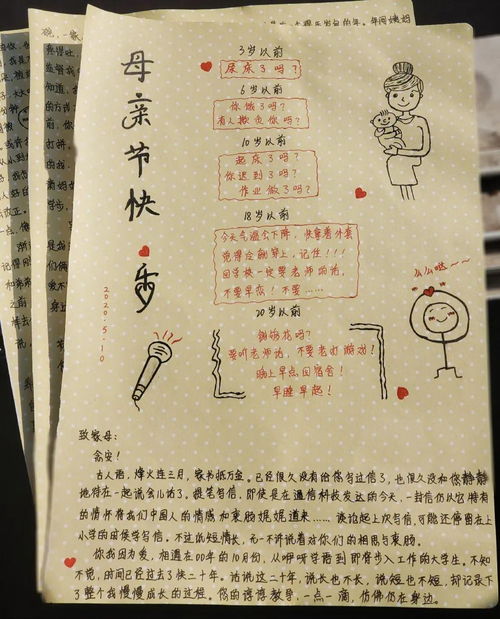 母亲节快乐
2020.5.10
3岁以前
尿床了吗?
6岁以前
你饿了吗?
有人欺负你吗?
10岁以前
起床了吗?
你迟到了吗?
作业做了吗?
18岁以前
今天气温会下降,快拿着外套
觉得冷就穿上,记住!!!
回学校一定要老师的话,
不要早恋!不要……
20岁以前
钱够花吗?
要听老师话,不要老打游戏!
晚上早点回宿舍!
早睡早起!
么么哒~~
致家母:
念安!
古人语,烽火连三月,家书抵万金。已经很久没有给您写过信了,也很久没和你静静
地待在一起说会儿话了。提笔写信,即使是在通信科技发达的今天,一封信仍以它特有
的情怀将我们中国人的情感和衷肠娓娓道来……谈论起上次写信,可能还停留在上
小学的时候学写信。不过纸短情长,无一不诉说着对你们的相思与衷肠。
你我因为爱,相遇在00年的10月份,从咿呀学语到即将步入工作的大学生。不知
不觉,时间已经过去了快二十年。话说这二十年,说长也不长,说短也不短,却记录下
了整个我慢慢成长的过程。你的谆谆教导,一点一滴,仿佛仍在身边。